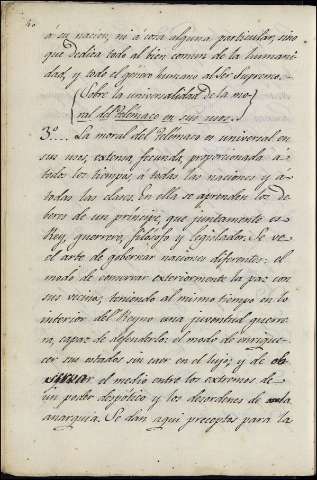 á su nacion, ni á cosa alguna particular, sino
que dedica todo al bien comun de la humani-
dad, y todo el género humano al Ser Supremo.
(Sobre la universalidad de la mo-)
ral del Telémaco en sus usos.
3º... La moral del Telémaco es universal en
sus usos, extensa, fecunda, proporcionada á
todos los tiempos, á todas las naciones y á
todas las clases. En ella se aprenden los de
beres de un príncipe, que juntamente es
Rey, guerrero, filósofo y legislador. Se ve
el arte de gobernar naciones diferentes: el
modo de conservar exteriormente la paz con
sus vecinos, teniendo al mismo tiempo en lo
interior del Reyno una juventud guerre-
ra, capaz de defenderlo: el modo de enrique-
cer sus estados sin caer en el lujo; y de
el medio entre los extremos de
un poder despótico y los desordenes de la
anarquia. Se dan aqui preceptos para la